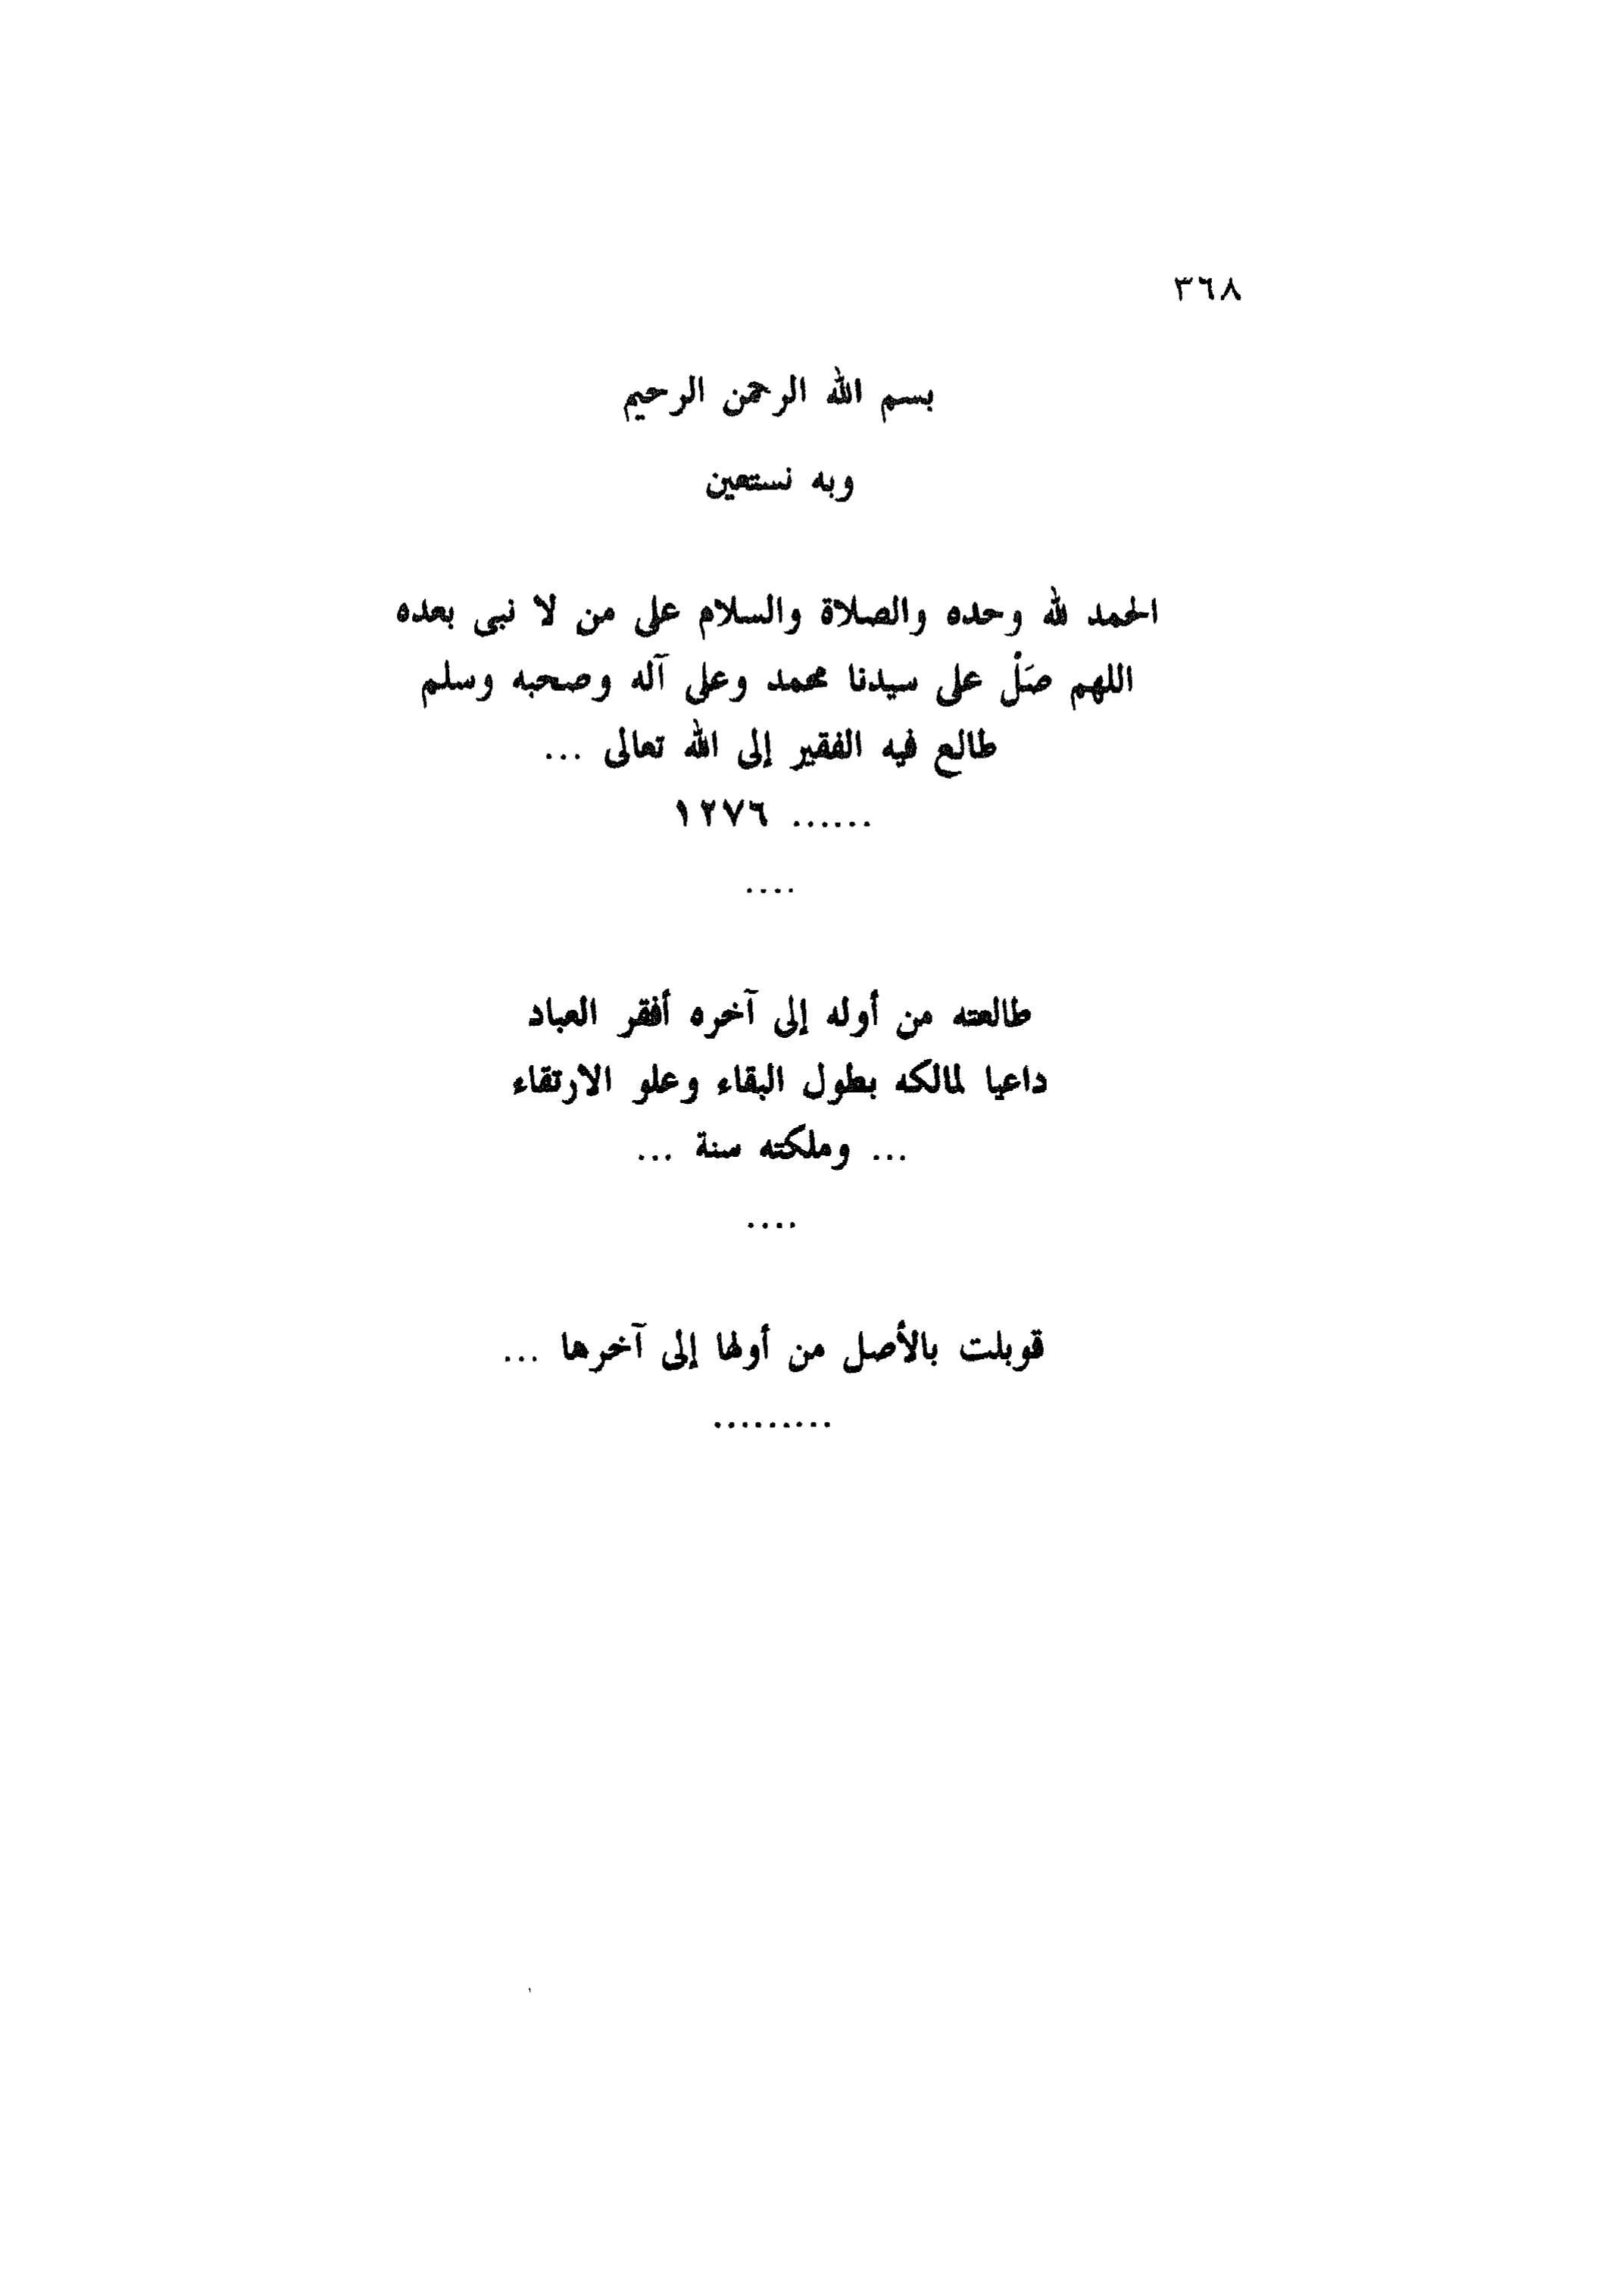 ٣٦٨
بسم الله الرحمن الرحيم
وبه نستعين
الحمد لله وحده والصلاة والسلام على من لا نبى بعده
اللهم صَلْ على سيدنا محمد وعلى آله وصحبه وسلم
طالع فيه الفقير إلى الله تعالى ...
...... ١٢٧٦
....
طالعته من أوله إلى آخره أفقر العباد
داعيا لمالكه بطول البقاء وعلو الارتقاء
... وملكته سنة ...
....
قوبلت بالأصل من أولها إلى آخرها ...
.........